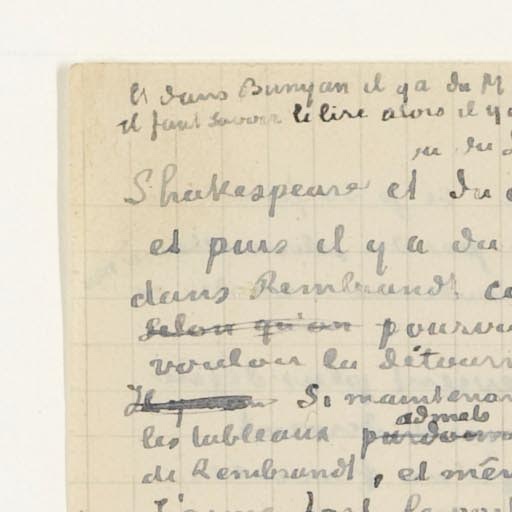 et dans Bunyan il y a du M
il faut savoir le lire alors il y a
ou du
Shakespeare et du
et puis il y a du
dans Rembrandt
selon qu'on pourvu
vouloir la détourn
Il y Si maintenan
admets
les tableaux pardonn
de Rembrandt, et mêm